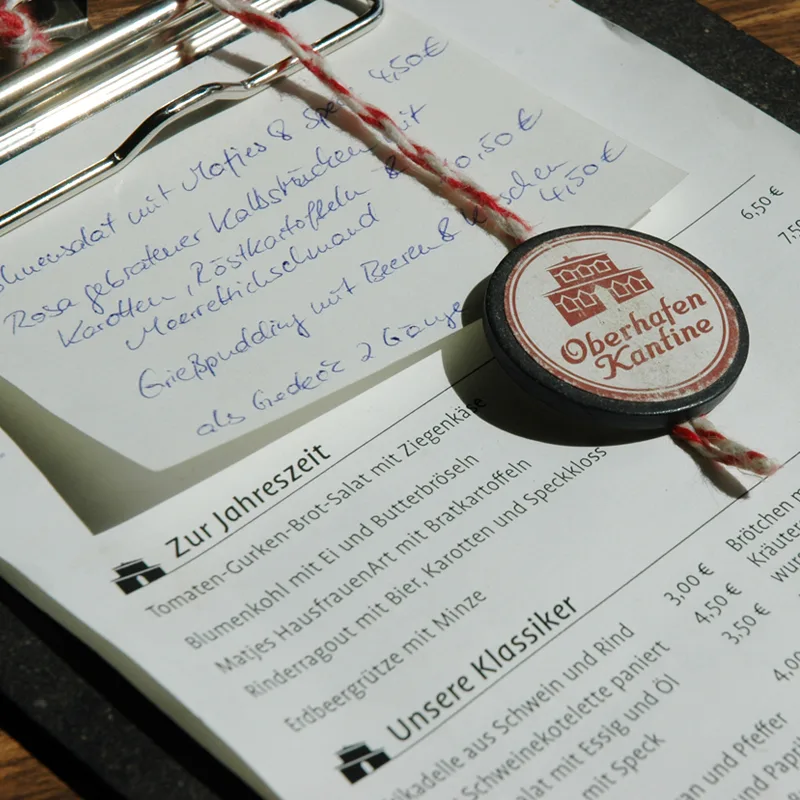 mit Matjes & 4,50€
Rosa gebratener Kalbsrücken mit
Karotten, Röstkartoffeln & 0,50€
Meerrettichschmand
Grießpudding mit Beeren & 4,50€
als Gedeck 2 Gänge
Oberhafen
Kantine
6,50 €
Zur Jahreszeit
Tomaten-Gurken-Brot-Salat mit Ziegenkäse
Blumenkohl mit Ei und Butterbröseln
Matjes HausfrauenArt mit Bratkartoffeln
Rinderragout mit Bier, Karotten und Speckkloss
Erdbeergrütze mit Minze
Unsere Klassiker
aus Schwein und Rind
Schweinekotelette paniert
mit Essig und Öl
mit Speck
3,00 €
4,50 €
3,50 €
Brötchen
Kräuter
und Pfeffer